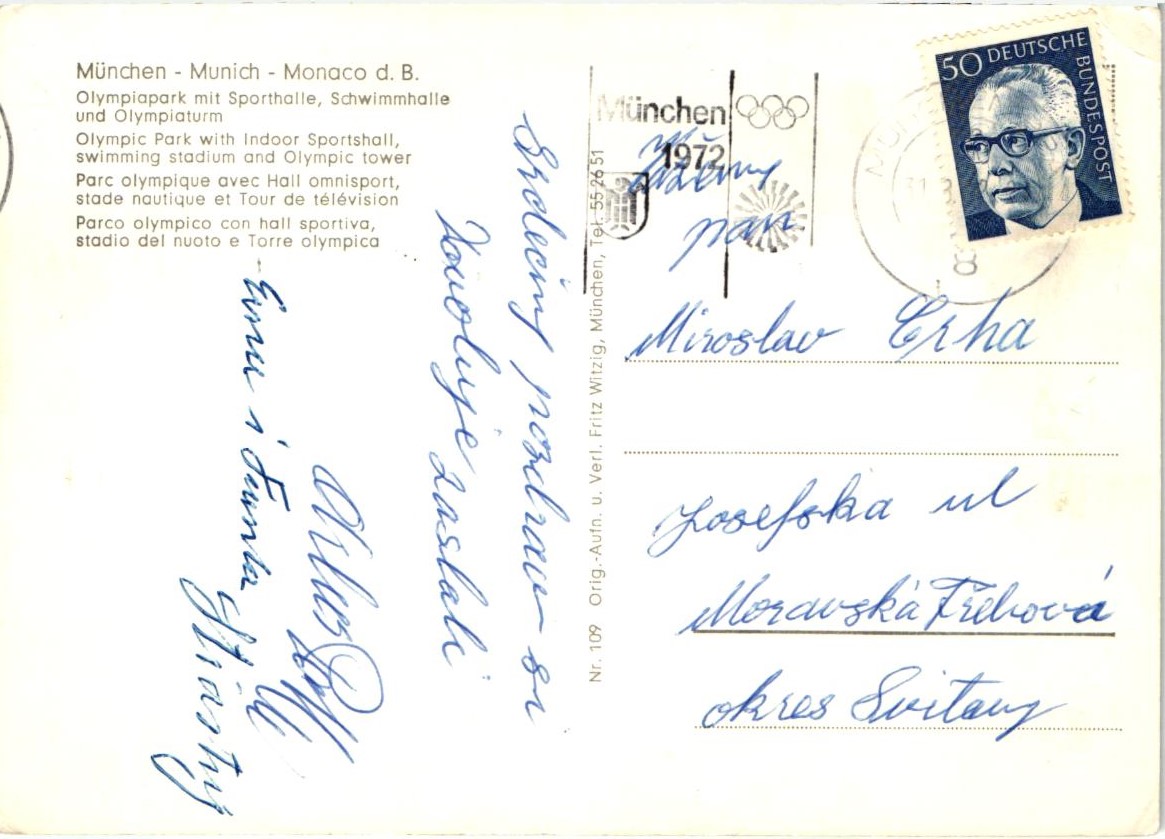 München - Munich - Monaco d. B.
Olympiapark mit Sporthalle, Schwimmhalle
und Olympiaturm
Olympic Park with Indoor Sportshall,
swimming stadium and Olympic tower
Parc olympique avec Hall omnisport,
stade nautique et Tour de télévision
Parco olympico con hall sportiva,
stadio del nuoto e Torre olympica
Srdečný pozdrav
zaslali
Nr. 109 Orig.-Aufn. u. Verl. Fritz Witzig, München, Tel. 55 26 51
München
1972
50 DEUTSCHE BUNDESPOST
pan
Miroslav Crha
Josefska ul
Moravská Třebová
okres Svitavy